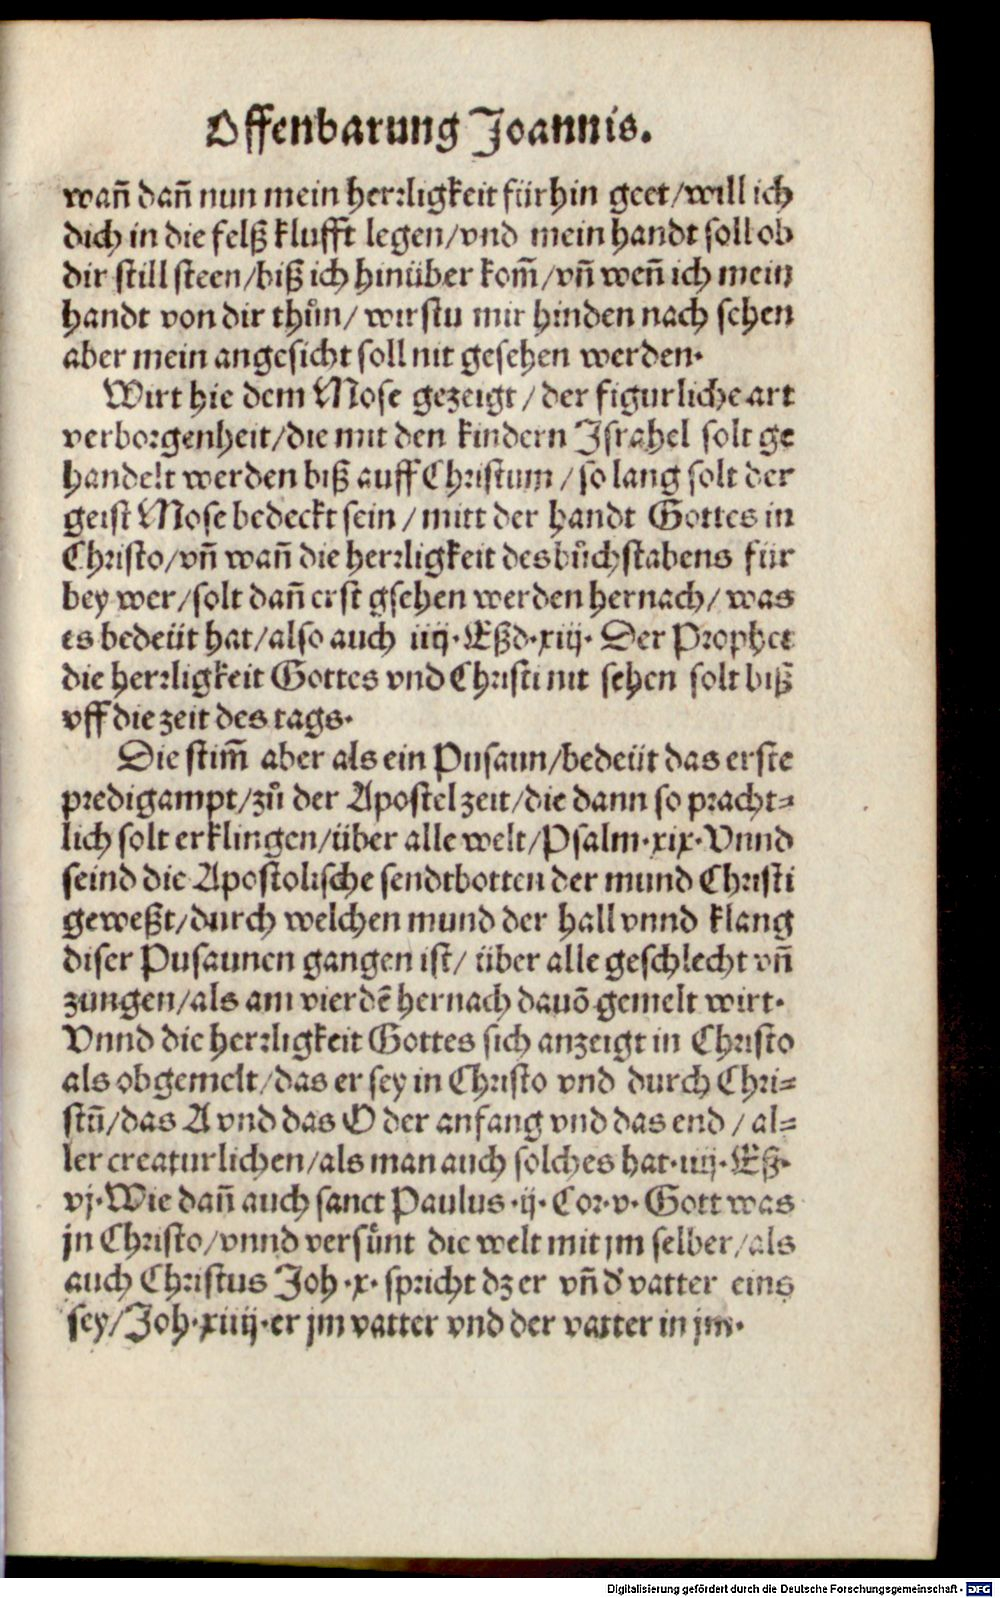 Offenbarung Joannis.
wañ dañ nun mein herrligkeit für hin geet/will ich
dich in die felß klufft legen/vnd mein handt soll ob
dir still steen/biß ich hinüber kom̃/vñ weñ ich mein
handt von dir thůn/ wirstu mir hinden nach sehen
aber mein angesicht soll nit gesehen werden.
Wirt hie dem Mose gezeigt / der figurliche art
verborgenheit/die mit den kindern Israhel solt ge
handelt werden biß auff Christum / so lang solt der
geist Mose bedeckt sein / mitt der handt Gottes in
Christo/vñ wañ die herrligkeit des bůchstabens für
bey wer/solt dañ erst gsehen werden hernach/ was
es bedeüt hat/also auch iiij. Eßd.xiij. Der Prophet
die herrligkeit Gottes vnd Christi nit sehen solt biß
vff die zeit des tags.
Die stim̃ aber als ein Pusaun/bedeüt das erste
predigampt/zů der Apostel zeit/die dann so pracht⸗
lich solt erklingen/über alle welt/Psalm.xix.Vnnd
seind die Apostolische sendtbotten der mund Christi
geweßt/durch welchen mund der hall vnnd klang
diser Pusaunen gangen ist/ über alle geschlecht vñ
zungen/als am vierdẽ hernach dauõ gemelt wirt.
Vnnd die herrligkeit Gottes sich anzeigt in Christo
als obgemelt/das er sey in Christo vnd durch Chri⸗
stũ/das A vnd das O der anfang vnd das end / al⸗
ler creaturlichen/als man auch solches hat.iiij.Eß.
vj.Wie dañ auch sanct Paulus .ij.Cor.v.Gott was
jn Christo/vnnd versůnt die welt mit jm selber/als
auch Christus Joh.x.spricht dz er vñ d' vatter eins
sey/Joh.xiiij.er jm vatter vnd der vatter in jm.
Digitalisierung gefördert durch die Deutsche Forschungsgemeinschaft - DFG